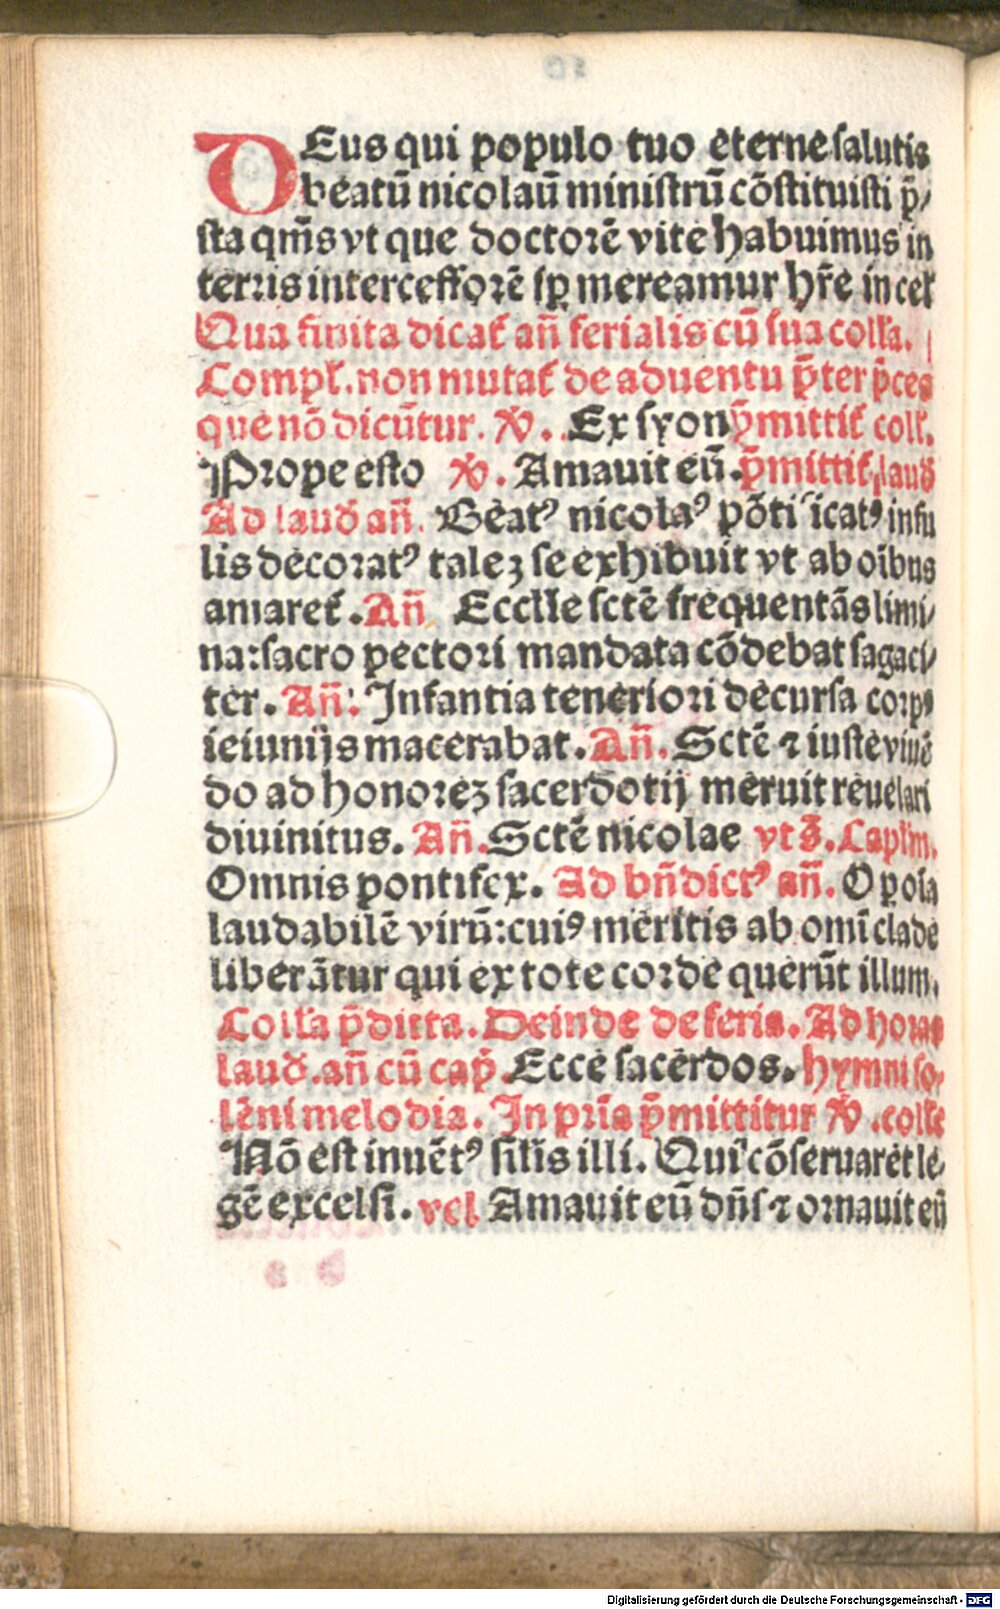 DEus qui populo tuo eterne salutis
beatū nicolaū ministrū cōstituisti p̄/
sta qm̄s vt que doctorē vite habuimus in
terris intercessorē sꝑ mereamur hr̄e in cel̄
Qua finita dicat̄ añ ferialis cū sua coll̄a.
Compl̄. non mutat̄ de aduentu p̄ter p̄ces
que nō dicūtur. ꝟ. Ex syon p̄mittit̄ coll̄.
Prope esto ꝟ. Amauit eū. p̄mittit̄ laud̄
Ad laud̄ añ. Beatꝰ nicolaꝰ pōtificatꝰ infu
lis decoratꝰ talez se exhibuit vt ab oībus
amaret̄. Añ Eccl̄ie sctē frequentās limi/
na: sacro pectori mandata cōdebat sagaci/
ter. Añ. Infantia teneriori decursa corpꝰ
ieiunijs macerabat. Añ. Sctē ⁊ iuste viuē
do ad honorez sacerdotij meruit reuelari
diuinitus. Añ. Sctē nicolae vt s̄. Capl̄m.
Omnis pontifex. Ad bn̄dictꝰ añ. O ꝑ oīa
laudabilē virū: cuiꝰ meritis ab omī clade
liberātur qui ex tote corde querūt illum.
Coll̄a p̄dicta. Deinde de feria. Ad horas
laud̄. añ cū cap̄. Ecce sacerdos. hymni so/
lēni melodia. In pria p̄mittitur ꝟ. coll̄e
Nō est inuētꝰ sil̄is illi. Qui cōseruaret le/
gē excelsi. vel Amauit eū dn̄s ⁊ ornauit eū
Digitalisierung gefördert durch die Deutsche Forschungsgemeinschaft - DFG